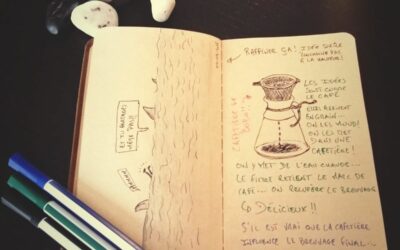 ET TU
RAFFINER ÇA! IDÉE
À LA HAUTEUR!
LES IDÉES
SONT COMME
LE CAFÉ
ELLES ARRIVENT
EN GRAIN...
ON LES MOUD!
ON LES MET
DANS UNE
CAFETIÈRE!
ON Y MET DE L'EAU CHAUDE...
LE FILTRE RETIENT LE MARC DE
CAFÉ... ON RÉCUPÈRE LE BREUVAGE
DÉLICIEUX!!
S'IL EST VRAI QUE LA CAFETIÈRE
INFLUENCE LE BREUVAGE FINAL...